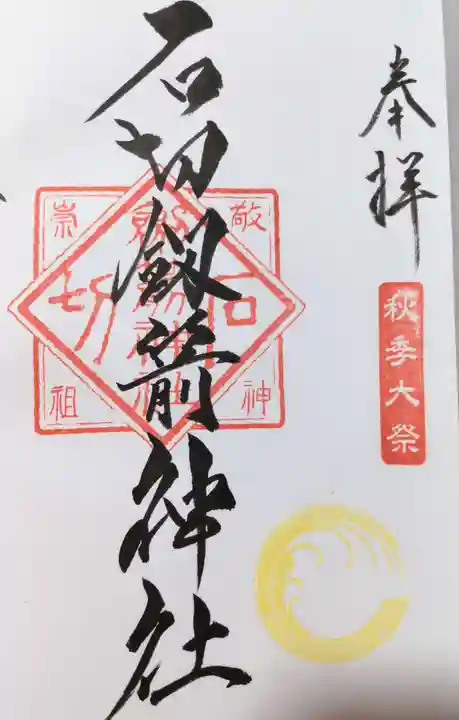 奉拝
秋季大祭
石切劔箭神社
敬神
崇祖
石
劔箭神社
切